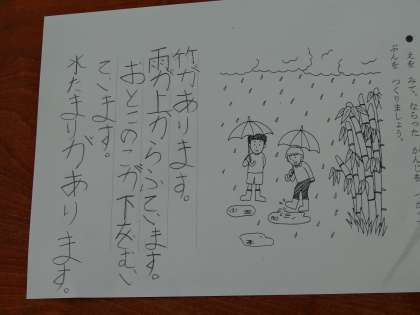 ● えを みて、ならった かんじを つかっ
ぶんを つくりましょう。
竹があります。
雨が上からふています。
おとこのこが下をむい
ています。
水たまりがあります。